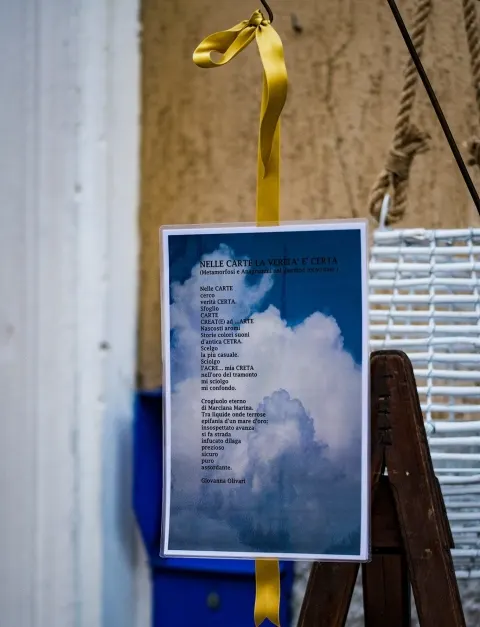 NELLE CARTE LA VERITA' E' CERTA
(Metamorfosi e Anagrammi
Nelle CARTE
cerco
verità CERTA.
Sfoglio
CARTE
CREAT(E) ad ...ARTE
Nascosti aromi
Storie colori suoni
d'antica CETRA.
Scelgo
la più casuale.
Sciolgo
l'ACRE... mia CRETA
nell'oro del tramonto
mi sciolgo
mi confondo.
Crogiuolo eterno
di Marciana Marina.
Tra liquide onde terrose
epifania d'un mare d'oro:
insospettato avanza
si fa strada
infuocato dilaga
prezioso
sicuro
puro
assordante.
Giovanna Olivari